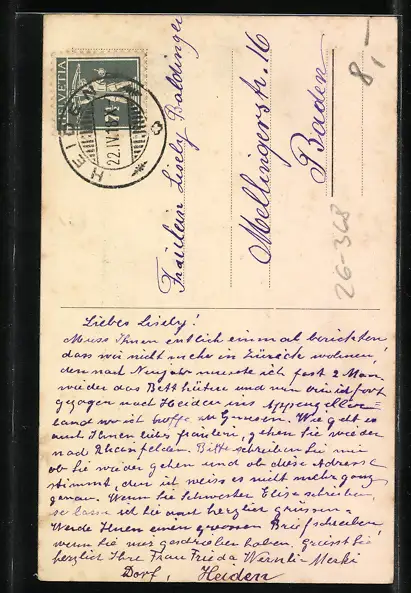 HELVETIA
HEIDEN
22.IV.
Fräulein Lisely Baldinger
Mellingerstr. 16
Baden
8,-
26-368
Liebes Lisely!
Muss Ihnen entlich einmal berichten
dass wir nicht mehr in Zürich wohnen,
den nach Neujahr musste ich fast 2 Mon.
wieder das Bett hüten und nun sind fort
gezogen nach Heiden ins Appenzeller-
land wo ich hoffe zu Genesen. Wie geht es
auch Ihnen liebes fräulein, gehen Sie wieder
nach Rheinfelden. Bitte schreiben Sie mir
ob Sie wieder gehen und ob diese Adresse
stimmt, den ich weiss es nicht mehr ganz
genau. Wenn Sie Schwester Elise schreiben,
so lasse ich Sie auch herzlich grüssen.
Werde Ihnen einen grossen Brief schreiben
wenn Sie mir geschrieben haben. Grüsst Sie
herzlich Ihre Frau Frieda Wernli-Merki
Dorf, Heiden